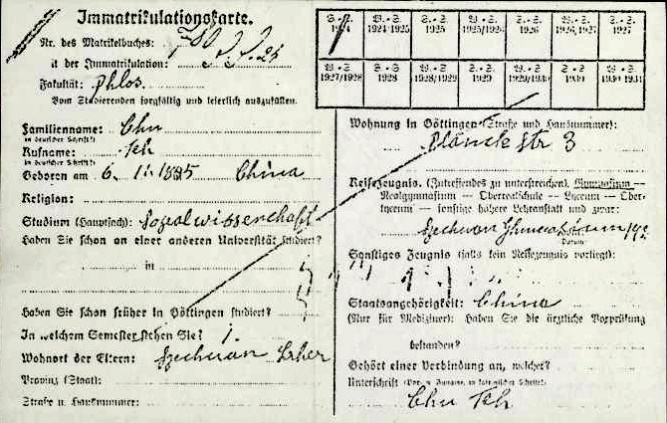 Immatrikulationskarte.
Nr. des Matrikelbuches:
d der Immatrikulation:
Fakultät: Phlos.
Vom Studierenden sorgfältig und leserlich auszufüllen.
Familienname: Chu
(in deutscher Schrift)
Rufname: Teh
(in deutscher Schrift)
Geboren am 6. China
Religion:
Studium (Hauptfach): Sozialwissenschaft
Haben Sie schon an einer anderen Universität studiert?
in
Haben Sie schon früher in Göttingen studiert?
In welchem Semester stehen Sie? 1.
Wohnort der Eltern: Szechuan
Provinz (Staat):
Straße u. Hausnummer:
S.-S. 1924
W.-S. 1924/1925
S.-S. 1925
W.-S. 1925/1926
S.-S. 1926
W.-S. 1926/1927
S.-S. 1927
W.-S. 1927/1928
S.-S. 1928
W.-S. 1928/1929
S.-S. 1929
W.-S. 1929/1930
S.-S. 1930
W.-S. 1930/1931
Wohnung in Göttingen (Straße und Hausnummer):
Planck str 3
Reifezeugnis. (Zutreffendes zu unterstreichen). Gymnasium —
Realgymnasium — Oberrealschule — Lyceum — Ober-
lyceum — sonstige höhere Lehranstalt und zwar:
Szechuan
Datum:
Sonstiges Zeugnis (falls kein Reifezeugnis vorliegt):
Staatsangehörigkeit: China
(Nur für Mediziner): Haben Sie die ärztliche Vorprüfung
bestanden?
Gehört einer Verbindung an, welcher?
Unterschrift
Chu Teh